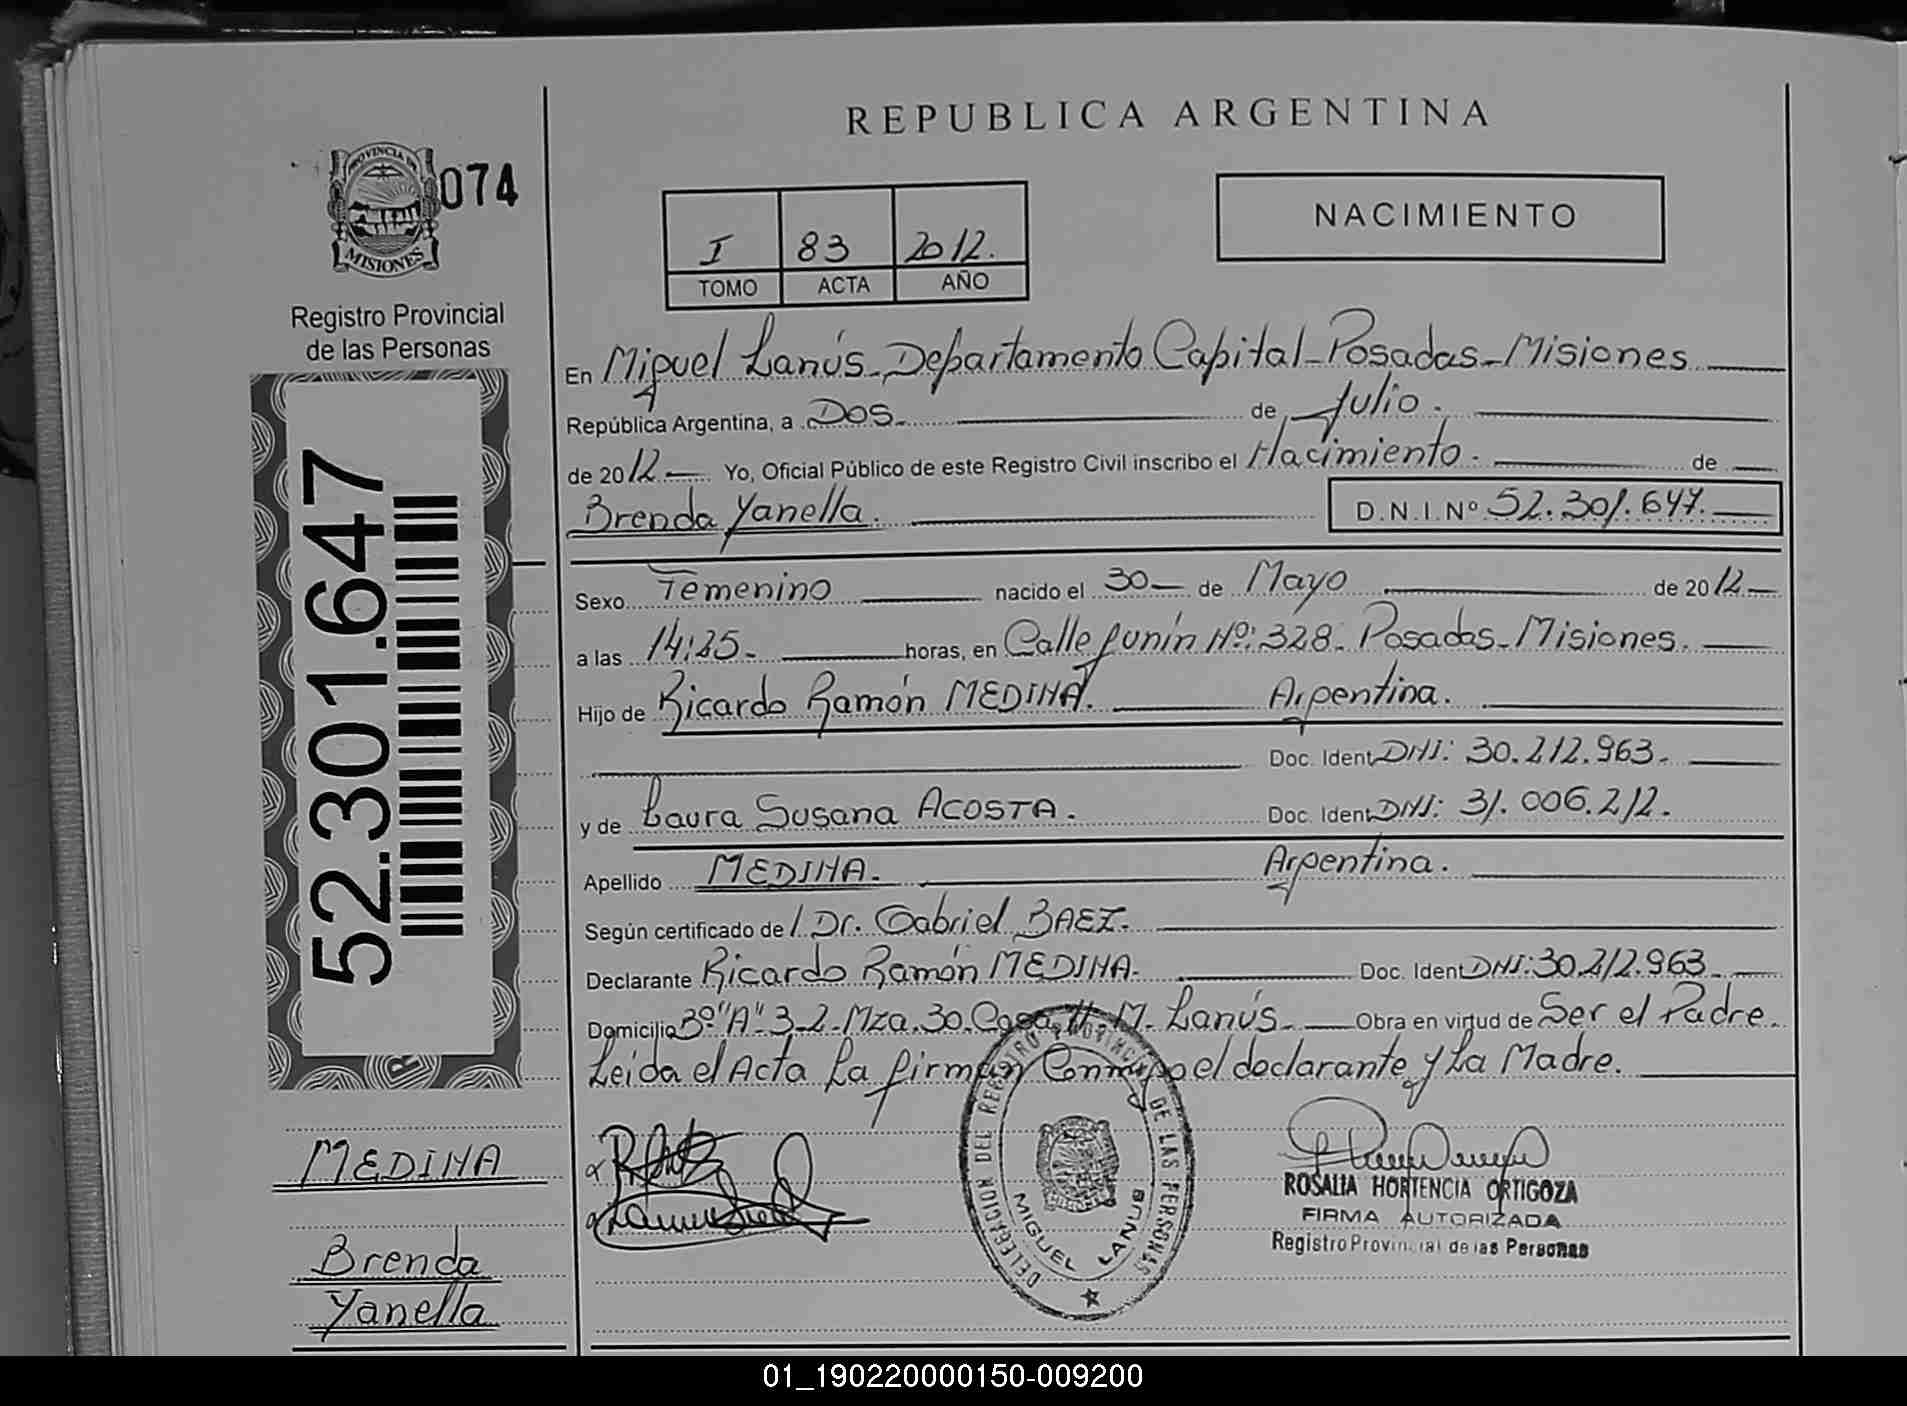 REPUBLICA ARGENTINA
PROVINCIA DE
MISIONES
074
Registro Provincial
de las Personas
I 83 2012.
TOMO ACTA AÑO
NACIMIENTO
En Miguel Lanús-Departamento Capital-Posadas-Misiones
República Argentina, a Dos de Julio.
de 2012 Yo, Oficial Público de este Registro Civil inscribo el Nacimiento. de
Brenda Yanella. D.N.I.Nº 52.301.647.
52.301.647
Sexo Femenino nacido el 30 de Mayo de 2012
a las 14:25 horas, en Calle Junín Nº: 328. Posadas-Misiones.
Hijo de Ricardo Ramón MEDINA. Argentina.
Doc. Ident DNI: 30.212.963.
y de Laura Susana ACOSTA. Doc. Ident DNI: 31.006.212.
Apellido MEDINA. Argentina.
Según certificado de l Dr. Gabriel BAEZ.
Declarante Ricardo Ramón MEDINA. Doc. Ident DNI: 30.212.963
Domicilio 3º"A" 32-Mza.30.Casa 11 M. Lanús. Obra en virtud de Ser el Padre.
Leida el Acta La firman Conmigo el declarante y La Madre.
MEDINA
Brenda
Yanella
DELEGACION DEL REGISTRO PROVINCIAL DE LAS PERSONAS
MIGUEL LANUS
ROSALIA HORTENCIA ORTIGOZA
FIRMA AUTORIZADA
Registro Provincial de las Personas
01_190220000150-009200